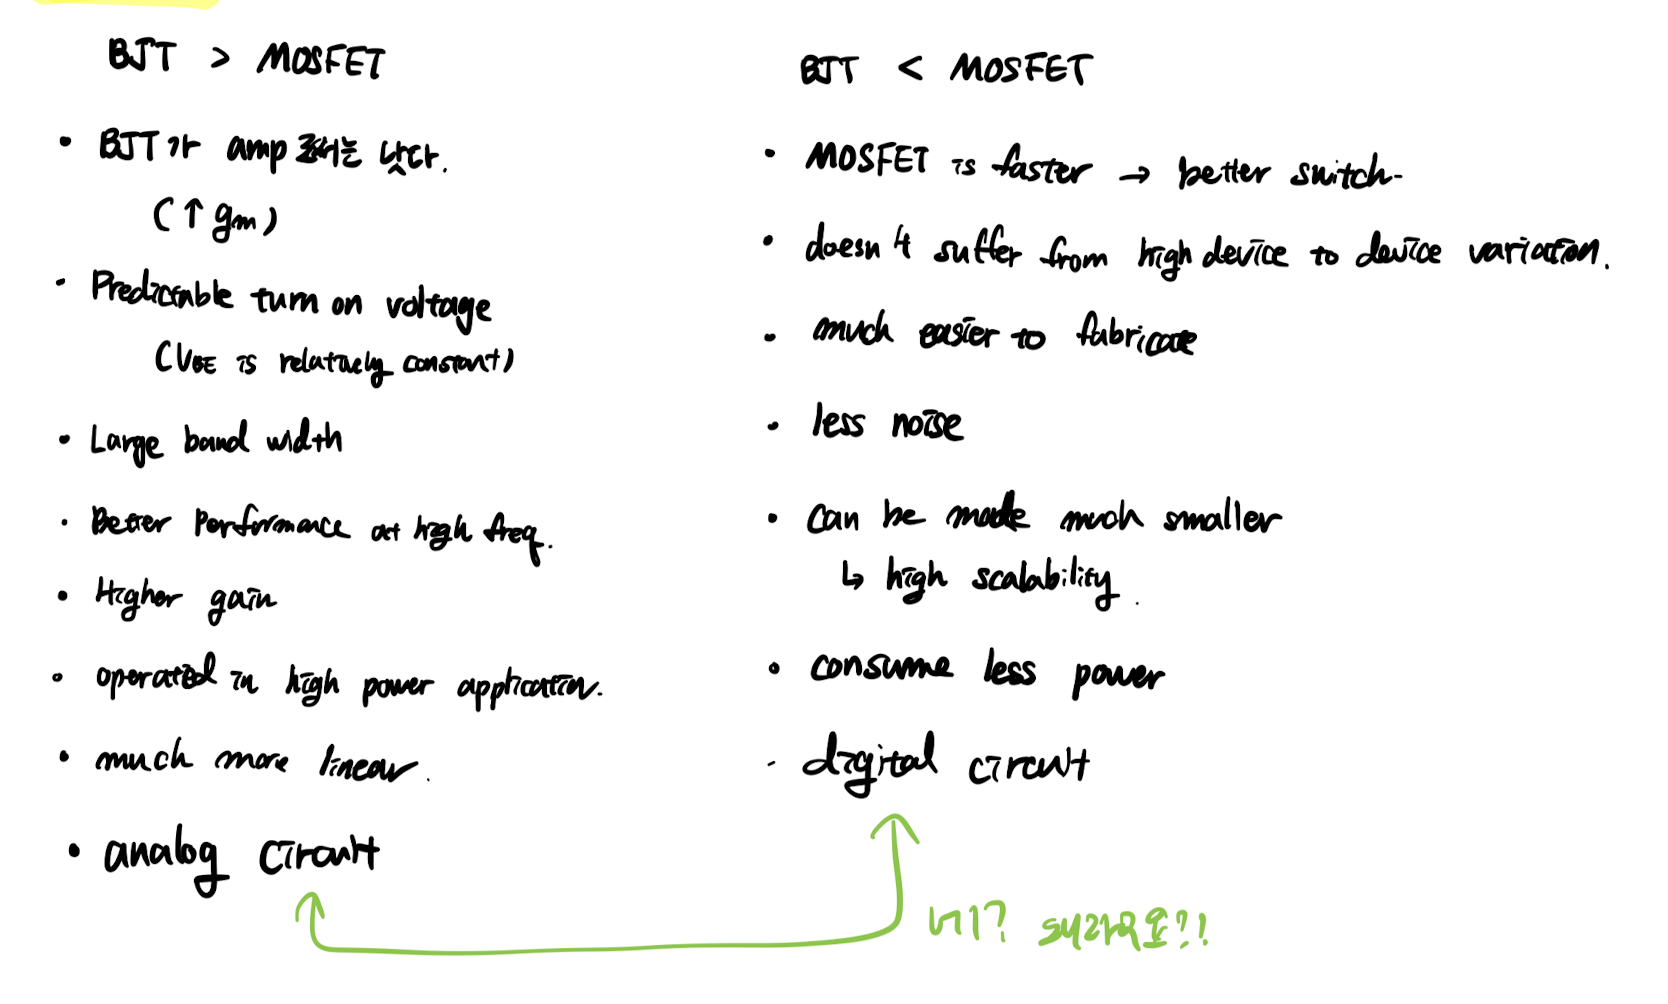 BJT > MOSFET
• BJT가 amp 로써는 낫다.
(↑ gm)
• Predictable turn on voltage
(VBE is relatively constant)
• Large band width
• Better Performance at high freq.
• Higher gain
• operated in high power application.
• much more linear.
• analog circuit
BJT < MOSFET
• MOSFET is faster → better switch-
• doesn't suffer from high device to device variation.
• much easier to fabricate
• less noise
• can be made much smaller
↳ high scalability.
• consume less power
• digital circuit
네?